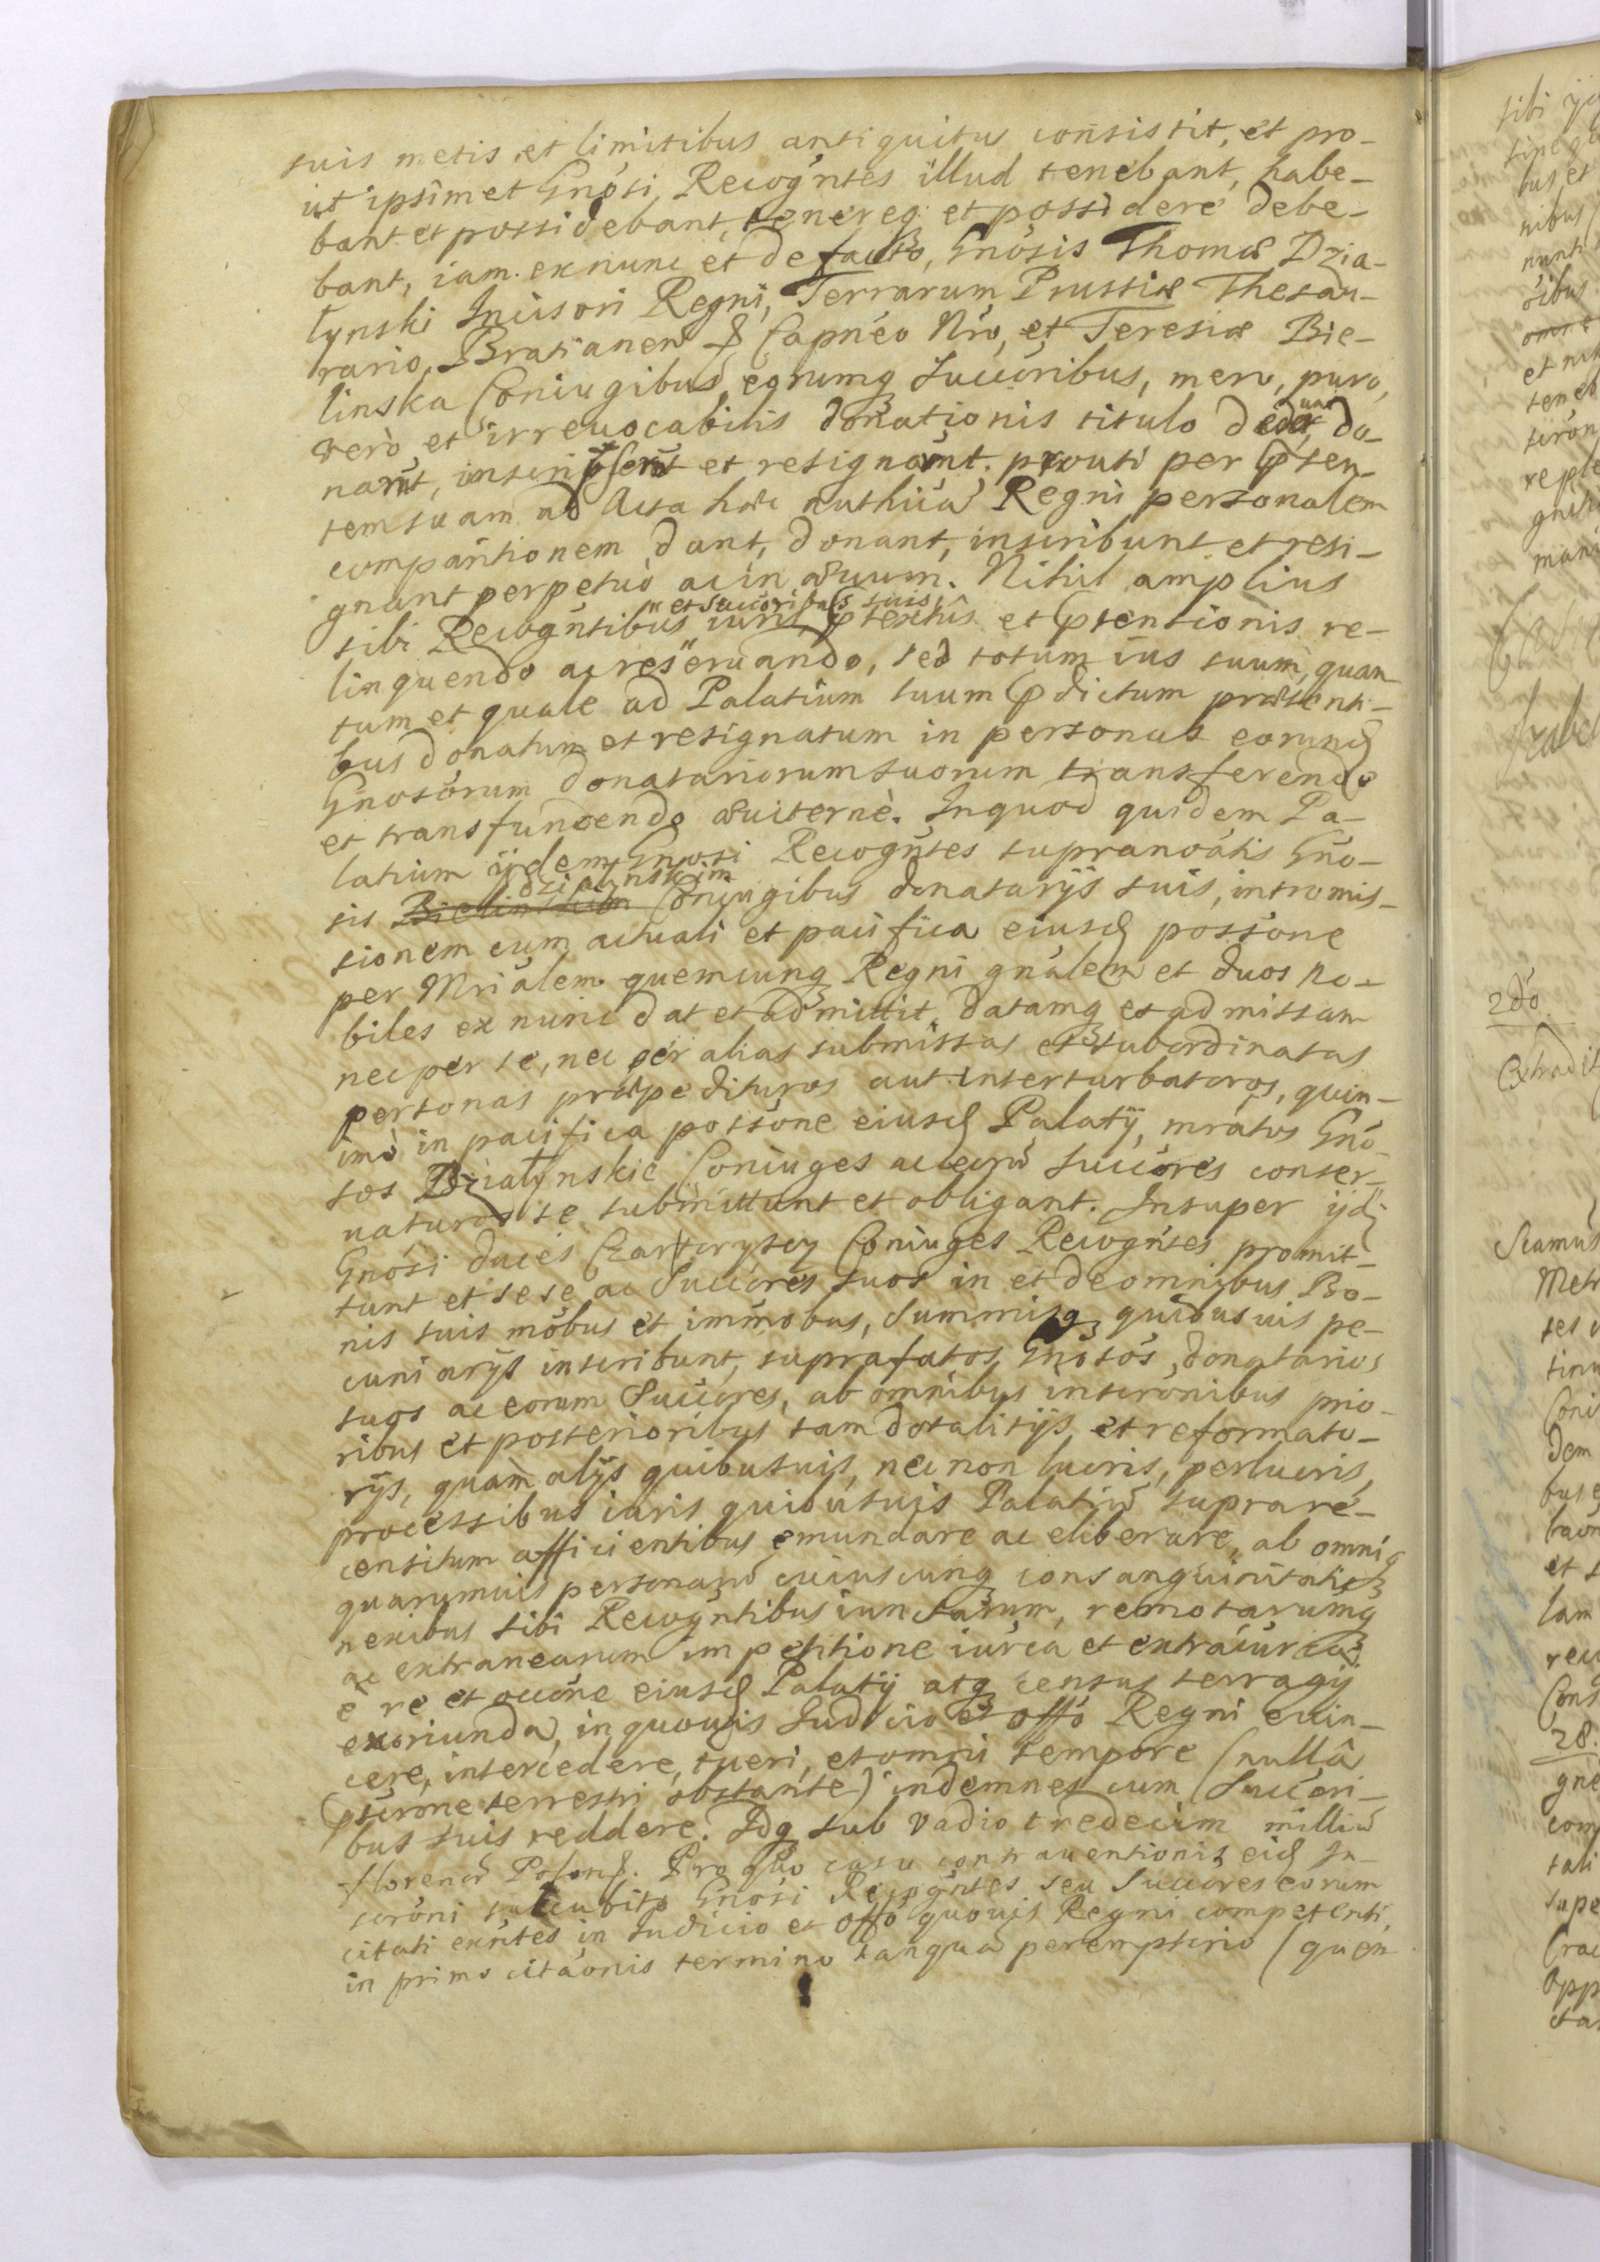 suis metis et limitibus antiquitus consistit, et pro-
ut ipsimet Gnosi Recogntes illud tenebant, habe-
bant et possidebant, tenereq et possidere debe-
bant, iam exnunc et defacto, Gnosis Thomæ Dzia-
łynski Incisori Regni, Terrarum Prussiæ Thesau-
rario, Bratianen Capneo Nro, et Teresiæ Bie-
linska Coniugibus, eorumq Succoribus, mero, puro,
vero, et irrevocabilis donationis titulo dederunt, do-
narunt, inscripserunt et resignarunt, prouti per pnsen-
tem suam ad Acta hæc authica Regni personalem
comparitionem dant, donant, inscribunt et resi-
gnant perpetuò ac in æuum. Nihil amplius
et Succoribus suis
sibi Recogntibus iuris, ptextûs et ptensionis re-
linquendo ac reseruando, sed totum ius suum, quan
tum et quale ad Palatium suum pdictum præsenti-
bus donatum et resignatum in personas eorund
Gnosorum donatariorum suorum transferendo
et transfundendo æuiternè. Inquod quidem Pa-
latium ijdem Gnosi Recogntes supranoatis Gno-
dzialynskim
sis Bielinskim Coniugibus donatarijs suis, intromis-
sionem cum actuali et pacifica eiusd possone
per Mrialem quemcunq Regni gnalem et duos no-
biles ex nunc dat et admittit, datamq et admissam
nec per se, nec per alias submissas et subordinatas
personas præpedituros aut interturbaturos, quin-
imò in pacifica possone eiusd Palatij, mratos Gno-
sos Działynskie Coniuges ac eoru Succores conser-
uaturos se submittunt et obligant. Insuper ijd
Gnosi duces Czartoryscy Coniuges Recogntes promit-
tunt et sese ac Succores suos in et de omnibus Bo-
nis suis mobus et immobus, Summisq quibusuis pe-
cuniarijs inscribunt, suprafatos Gnosos, donatarios
suos ac eorum Succores, ab omnibus inscronibus prio-
ribus et posterioribus tam dotalitijs, et reformato-
rijs, quàm alijs quibusuis, nec non lucris, perlucris,
processibus iuris quibusuis Palatiu suprare-
censitum afficientibus emundare ac eliberare, ab omniq
quarumuis personaru cuiuscunq consanguinitatis
nexibus sibi Recogntibus iunctarum, remotarumq
ac extranearum impetitione iurea et extraiurea
è re et occone eiusd Palatij atq census terragij
exoriunda, in quouis Judicio et Offo Regni euin-
cere, intercedere, tueri, et omni tempore (nullâ
pscrone terrestri obstante) indemnes cum Succori-
bus suis reddere. Idq sub vadio tredecim milliu
florenor Polon. Pro quo casu contrauentionis eid In-
scroni succubito Gnosi Recogntes seu Succores eorum
citati exntes in Judicio et Offo quouis Regni competenti,
in primo citaonis termino tanqua peremptorio (quem
2do
28.